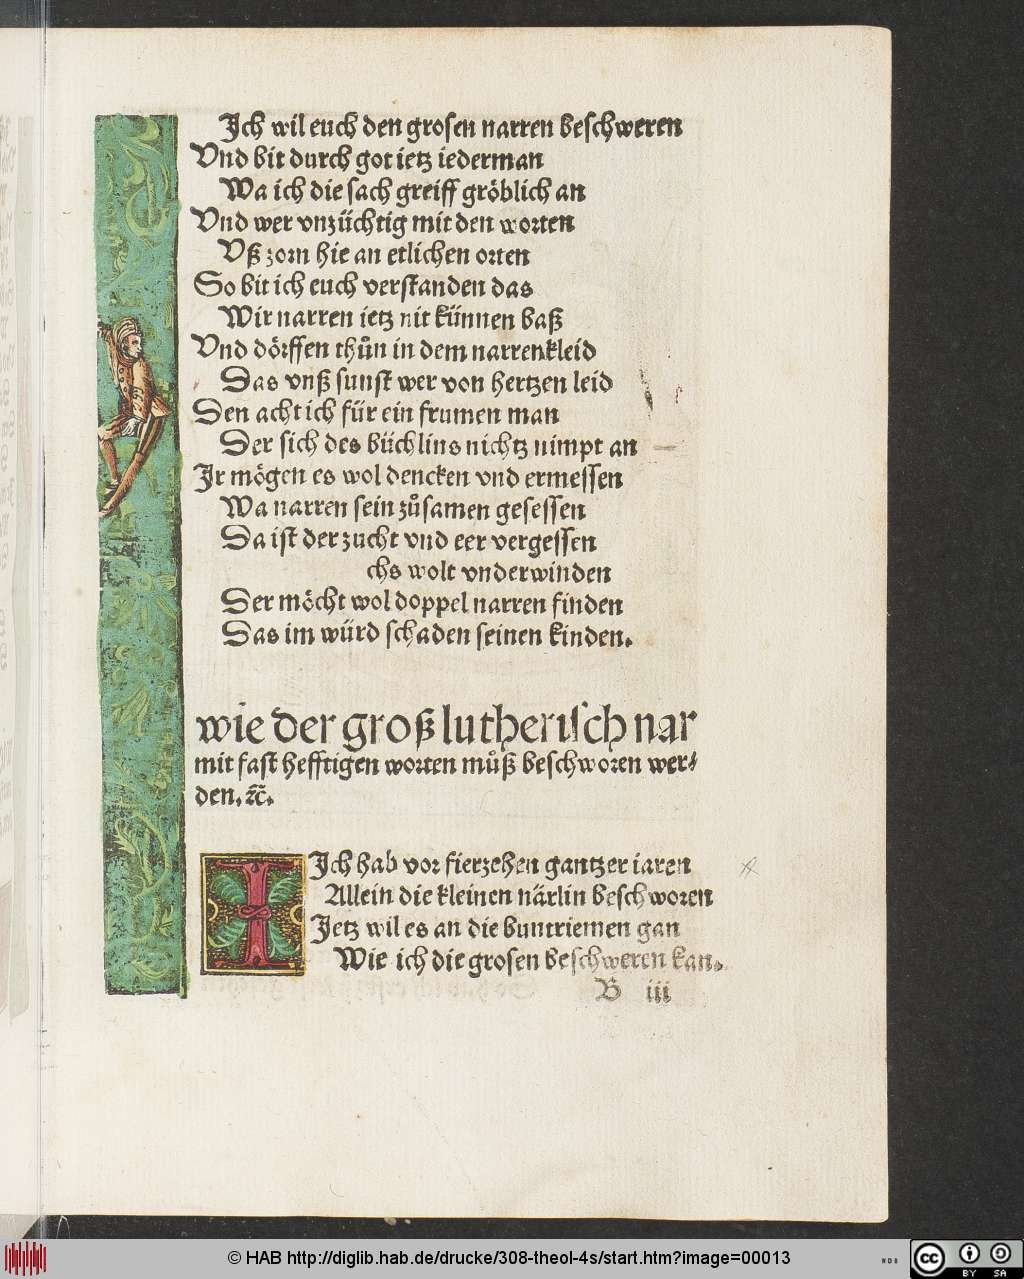 Ich wil euch den grosen narren beschweren
Vnd bit durch got ietz iederman
Wa ich die sach greiff gröblich an
Vnd wer vnzüchtig mit den worten
Vß zorn hie an etlichen orten
So bit ich euch verstanden das
Wir narren ietz nit künnen baß
Vnd dörffen thůn in dem narrenkleid
Das vnß sunst wer von hertzen leid
Den acht ich für ein frumen man
Der sich des büchlins nichtz nimpt an
Ir mögen es wol dencken vnd ermessen
Wa narren sein zůsamen gesessen
Da ist der zucht vnd eer vergessen
chs wolt vnderwinden
Der möcht wol doppel narren finden
Das im würd schaden seinen kinden.
wie der groß lutherisch nar
mit fast hefftigen worten můß beschworen wer⸗
den. ꝛc.
IIch hab vor fierzehen gantzer iaren
Allein die kleinen närlin beschworen
Ietz wil es an die buntriemen gan
Wie ich die grosen beschweren kan.
B iii
© HAB http://diglib.hab.de/drucke/308-theol-4s/start.htm?image=00013
cc BY SA